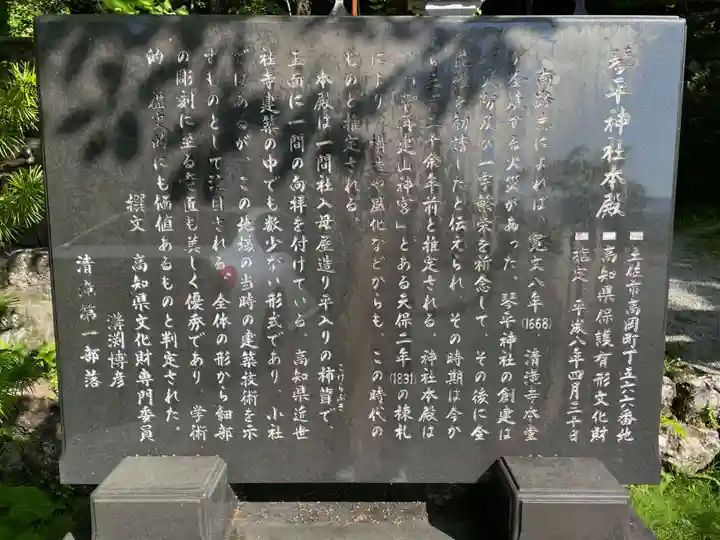 琴平神社本殿
土佐市高岡町丁五六六番地
高知県保護有形文化財
指定 平成八年四月三十日
によれば、寛文八年(1668)、清滝寺本堂
全焼する火災があった。琴平神社の創建は
及び一字繁栄を祈念して、その後に金
を勧請したと伝えられ、その時期は今か
十余年前と推定される。神社本殿は
再建山神宮」とある天保二年(1831)の棟札
により、構造や風化などからも、この時代の
ものと推定される。
本殿は一間社入母屋造り平入りの杮葺で、
こけらぶき
正面に一間の向拝を付けている。高知県近世
社寺建築の中でも数少ない形式であり、小社
ではあるが、この地域の当時の建築技術を示
すものとして注目される。全体の形から細部
の彫刻に至る意匠も美しく優秀であり、学術
的、歴史的にも価値あるものと判定された。
撰文 高知県文化財専門委員
溝渕博彦
清滝第一部落